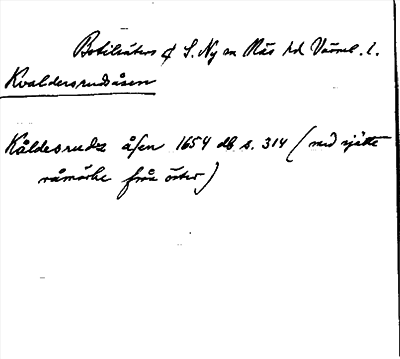 Bobilsäters ⊄ S. Ny sn Näs hd Värml. l.
Kvaldersrudsåsen
Kåldesrudz åsen 1654 db s. 314 (med sjätte
råmärke från öster)